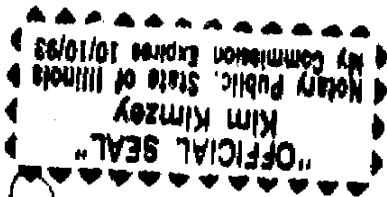 "OFFICIAL SEAL"
Kim Kimzey
Notary Public, State of Illinois
My Commission Expires 10/10/93